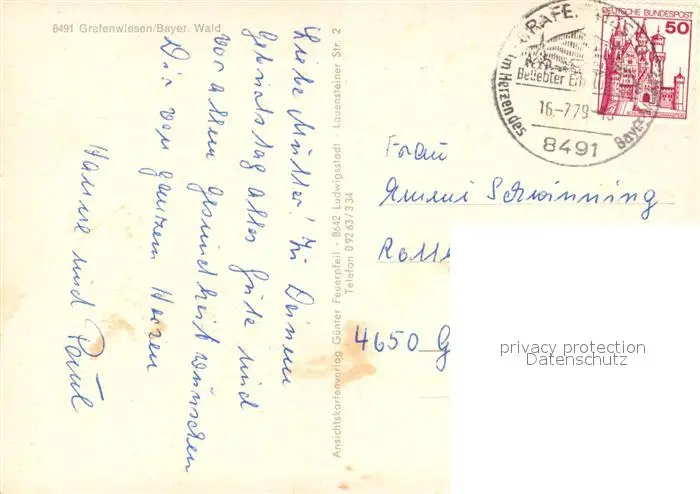 8491 Grafenwiesen/Bayer. Wald
Liebe Mutter! Zu Deinem
Geburtstag alles Gute und
vor allem Gesundheit wünschen
Dir von ganzem Herzen
Hanne und Paul
Ansichtskartenverlag Günter Feuerpfeil - 8642 Ludwigsstadt - Lauensteiner Str. 2
Telefon 09263/334
GRAFE
Beliebter
16.-7.79-
im Herzen des Baye
8491
DEUTSCHE BUNDESPOST
50
Frau
Schwinning
4650 G
privacy protection
Datenschutz